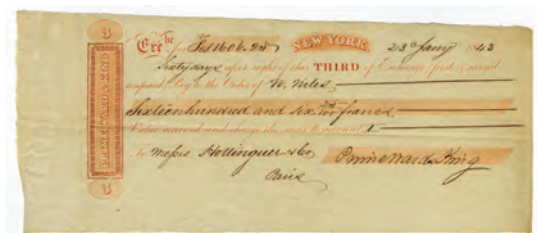 3
PRIME WARD & KING
3
for Fcs 1606.25 NEW YORK 23d Jany 1843
Sixty days after sight of this THIRD of Exchange first & second
unpaid, Pay to the Order of W. Niles
Sixteen hundred and six francs
Value received and charge the same to account
To Messrs Hottinguer & Co Prime Ward & King
Paris